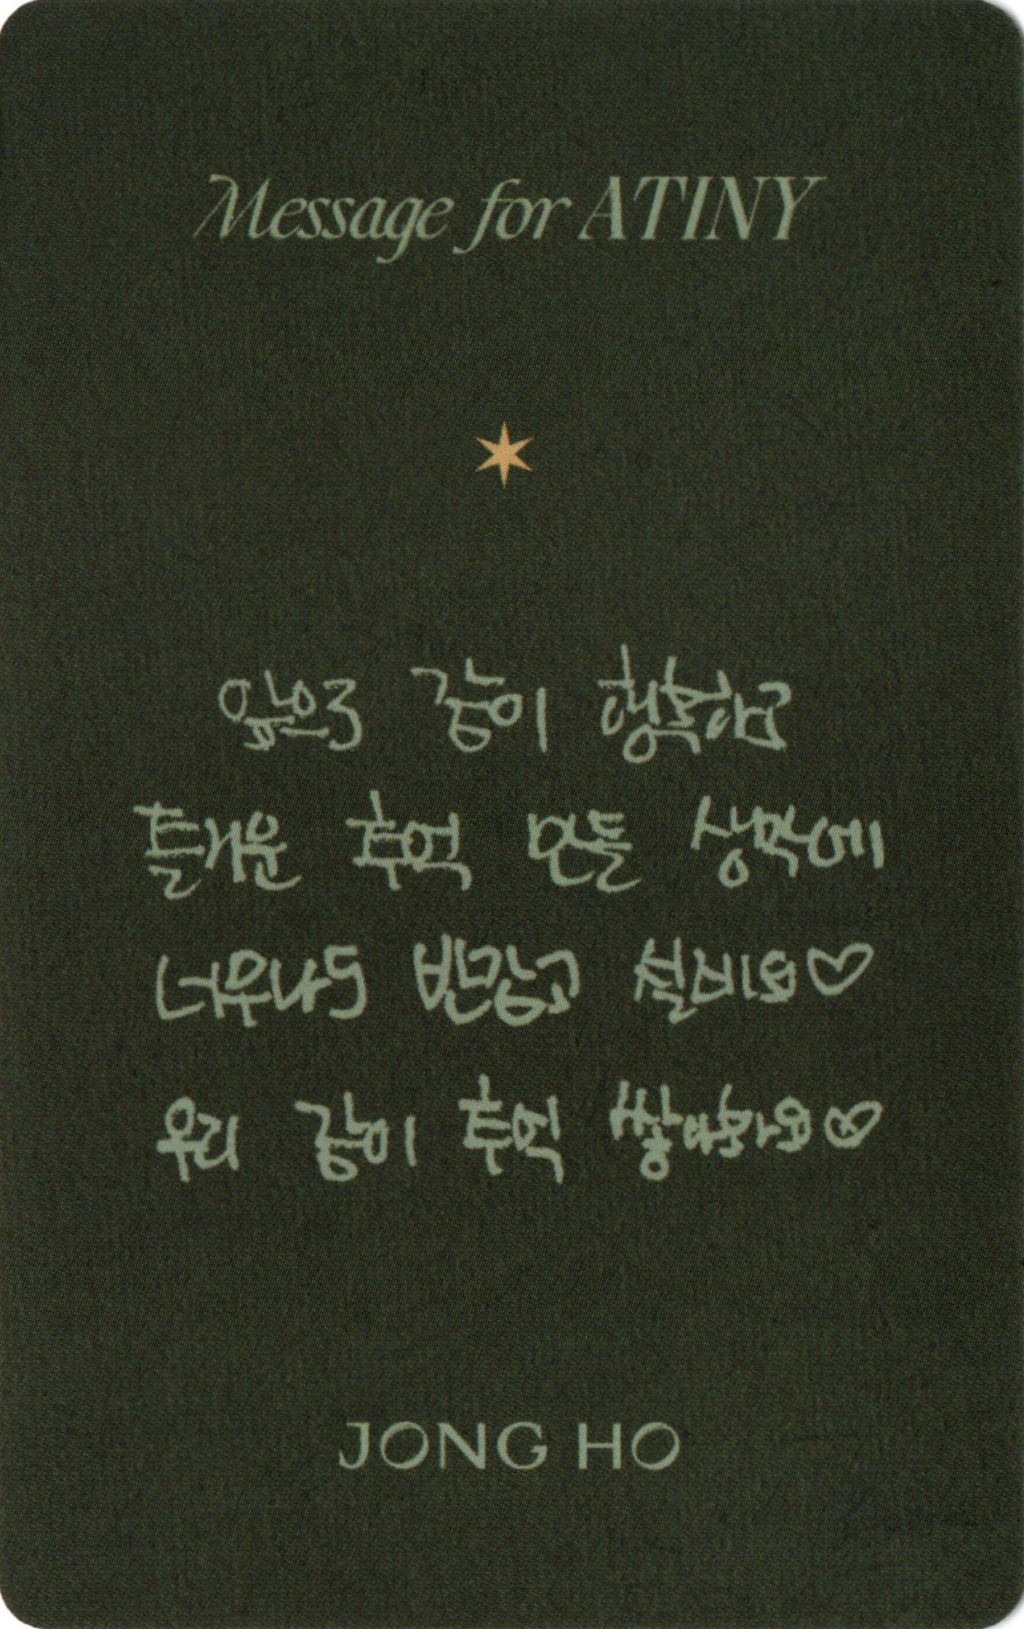 Message for ATINY
앞으로 같이 행복하고
즐거운 추억 만들 생각에
너무나도 반갑고 설레요♡
우리 같이 추억 쌓아봐요♡
JONG HO